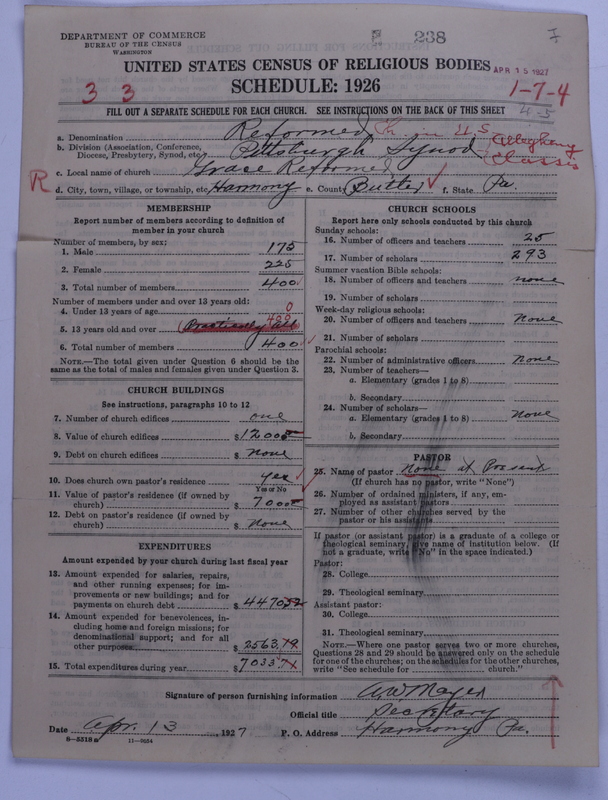 DEPARTMENT OF COMMERCE
BUREAU OF THE CENSUS
WASHINGTON
238
UNITED STATES CENSUS OF RELIGIOUS BODIES
APR 15 1927
SCHEDULE: 1926
3 3
1-7-4
FILL OUT A SEPARATE SCHEDULE FOR EACH CHURCH. SEE INSTRUCTIONS ON THE BACK OF THIS SHEET
45
a. Denomination Reformed Ch in U S
b. Division (Association, Conference, Diocese, Presbytery, Synod, etc.) Pittsburgh Synod
Allegheny Classis
c. Local name of church Grace Reformed
R d. City, town, village, or township, etc. Harmony e. County Butler f. State Pa.
MEMBERSHIP
Report number of members according to definition of
member in your church
Number of members, by sex:
1. Male 175
2. Female 225
3. Total number of members 400
Number of members under and over 13 years old:
4. Under 13 years of age 0
5. 13 years old and over Practically all 400
6. Total number of members 400
NOTE.—The total given under Question 6 should be the
same as the total of males and females given under Question 3.
CHURCH BUILDINGS
See instructions, paragraphs 10 to 12
7. Number of church edifices one
8. Value of church edifices $12000
9. Debt on church edifices $ none
10. Does church own pastor's residence yes
Yes or No
11. Value of pastor's residence (if owned by
church) $ 7000
12. Debt on pastor's residence (if owned by
church) $ none
EXPENDITURES
Amount expended by your church during last fiscal year
13. Amount expended for salaries, repairs,
and other running expenses; for im-
provements or new buildings; and for
payments on church debt $ 4470.52
14. Amount expended for benevolences, in-
cluding home and foreign missions; for
denominational support; and for all
other purposes $ 2563.19
15. Total expenditures during year $ 7033.71
CHURCH SCHOOLS
Report here only schools conducted by this church
Sunday schools:
16. Number of officers and teachers 25
17. Number of scholars 293
Summer vacation Bible schools:
18. Number of officers and teachers none
19. Number of scholars
Week-day religious schools:
20. Number of officers and teachers None
21. Number of scholars
Parochial schools:
22. Number of administrative officers None
23. Number of teachers—
a. Elementary (grades 1 to 8)
b. Secondary
24. Number of scholars—
a. Elementary (grades 1 to 8) None
b. Secondary
PASTOR
25. Name of pastor None at Present
(If church has no pastor, write "None")
26. Number of ordained ministers, if any, em-
ployed as assistant pastors
27. Number of other churches served by the
pastor or his assistants
If pastor (or assistant pastor) is a graduate of a college or
theological seminary, give name of institution below. (If
not a graduate, write "No" in the space indicated.)
Pastor:
28. College
29. Theological seminary
Assistant pastor:
30. College
31. Theological seminary
NOTE.—Where one pastor serves two or more churches,
Questions 28 and 29 should be answered only on the schedule
for one of the churches; on the schedules for the other churches,
write "See schedule for church."
Signature of person furnishing information A. W. Mayer
Official title Secretary
Date Apr. 13, 1927 P. O. Address Harmony Pa.
8-5318a 11-9034